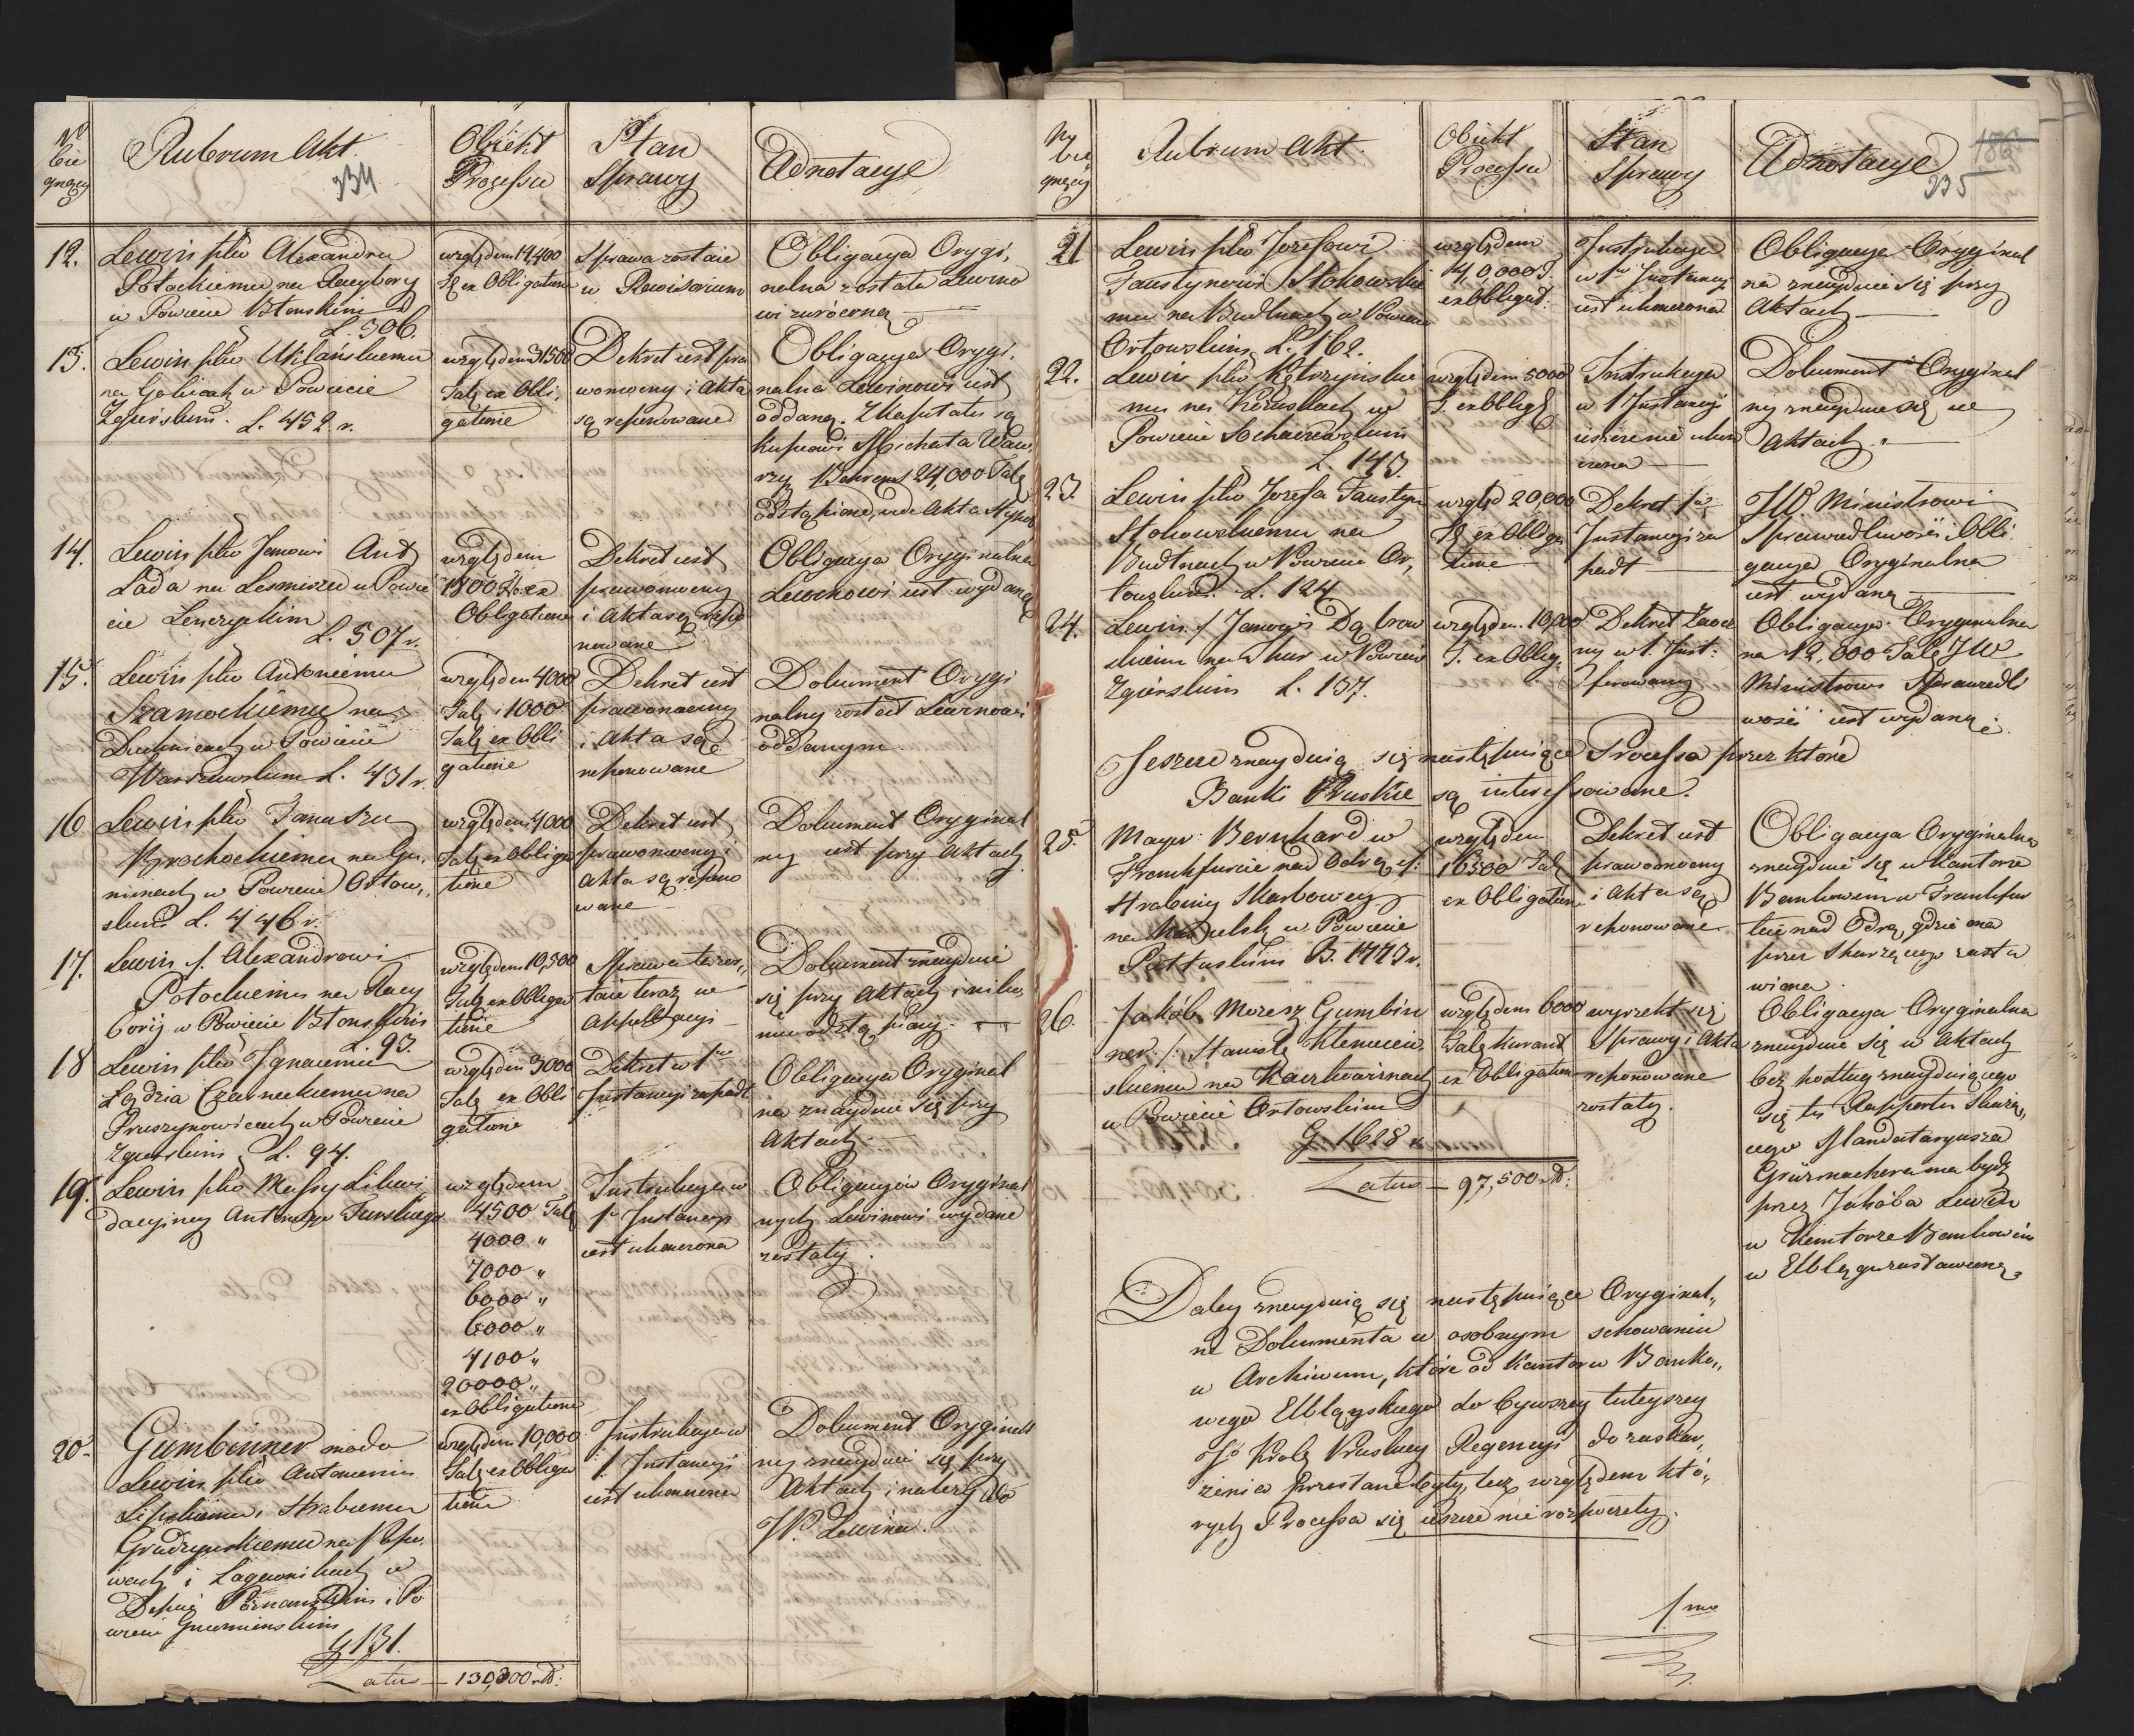 Nr bie gnący
Rubrum Akt.
234
Obiekt Processu
Stan Sprawy
Adnotacye
12.
Lewin ptko Alexandrze
Potockiemu na Raczybory
w Powiecie Błonskim
L. 306.
względem 12,400
Tl ex Obligatione
Sprawa zostaie
w Revisorium
Obligacya Orygi,
nalna została Lewino
wi zwrócona
13.
Lewin ptko Uklańskiemu
na Gobicach w Powiecie
Zgierskim. L. 452 v.
względem 31500
Tal ex Obli,
gatione
Dekret iest pra
womocny i Akta
są reponowane
Obligacya Orygi.
nalna Lewinowi iest
oddana. Z Kapitału są
Kupcowi Michała Waw.
rzy. Behrend 24,000 Tal
odstąpione, vide Akta Hypot
14.
Lewin ptko Janowi Ant
Łada na Lesmierzu w Powie
cie Lenczyckim
L. 507 v.
względem
1800 ex
Obligatione
Dekret iest
prawomocny
i Akta są repo
nowane
Obligacya Oryginalna
Lewinowi iest wydana
15.
Lewin ptko Antoniemu
Szamockiemu na
Duchnicach w Powiecie
Warszawskim L. 431 v.
względem 4000
Tal i 1000
Tal ex Obli
gatione
Dekret iest
prawomocny
i Akta są
reponowane
Dokument Orygi
nalny został Lewinowi
oddanym
16
Lewin ptko Januszu
Brochockiemu na Gu,
minach w Powiecie Orłow,,
skim L. 446 v.
względem 4000
Tal ex Obliga
tione
Dekret iest
prawomocny i
Akta są repono
wane
Dokument Oryginal
ny iest przy Aktach
17.
Lewin /. Alexandrowi
Potockiemu na Racy
bory w Powiecie Błonskim
L. 93.
względem 10,500
Tal ex Obliga
tione
Sprawa ta zos,,
taie teraz we
Appellacyi
Dokument znayduie
się przy Aktach i niko
mu odstąpiony
18
Lewin ptko Ignacemu
Lędzia Czarneckiemu na
Pruszynowicach w Powiecie
Zgierskim L. 94.
względem 3000
Tal ex Obli
gatione
Dekret w 1wo
Instancyi zapadł
Obligacya Oryginal
na znayduie się przy
Aktach
19.
Lewin ptko Massy Likwi
dacyiney Antoniego Turskiego
względem
4500 Tal
4000 "
7000 "
6000 "
6000 "
4100 "
20000 "
ex Obligatione
Instrukcya w
1o Instancyi
iest ukończona
Obligacyiów Oryginal
nych Lewinowi wydane
zostały.
20.
Gumbinner modo
Lewin ptko Antoniemu
Lipskiemu, Hrabiemu
Grudzynskiemu na
i Łagiewnikach w
Depcie Poznanskim i Po
wiecie Gnieznienskim
G 131.
względem 10,000
Tal ex Obliga
tione
Instrukcya w
1 Instancyi
iest ukończona
Dokument Oryginal
ny znayduie się przy
Aktach i należy do
JP. Lewina.
Latus — 130,300
Nr bie gnący
Rubrum Akt.
Obiekt Processu
Stan Sprawy
Adnotacye
186
235
21
Lewin ptko Jozefowi
Faustynowi Stokowskie
mu na Budtnach w Powiecie
Orłowskim L. 162.
względem
40,000 T.
ex Obligat:
Instrukcya
w 1ey Instancyi
iest ukończona
Obligacya Oryginal
na znayduie się przy
Aktach
22.
Lewin ptko Kętrzynskie
mu na w
Powiecie Sochaczewskim
L. 143.
względem 5000
T. ex Oblig
Instrukcya
w 1 Instancyi
ieszcze nie ukoń
czona
Dokument Oryginal
ny znayduie się we
Aktach.
23.
Lewin ptko Jozefa Faustyn
Stokowskiemu na
Budtnach w Powiecie Or,
łowskim. L. 124
względ 20,000
Tl ex Obliga
tione
Dekret 1ey
Instancyi za
padł
JW. Ministrowi
Sprawiedliwości Obli
gacya Oryginalna
iest wydana
24.
Lewin / Janowi Dąbrow
skiem na Thur w Powiecie
Zgierskim L. 137.
względem 10,000
T. ex Oblig.
Dekret Zaocz
ny w 1. Inst:
ferowany
Obligacya Oryginalna
na 12,000 Tal JW
Ministrowi Sprawiedli
wości iest wydana
Jeszcze znayduią się następuiące Processa przez które
Banki Pruskie są interessowane.
25.
Mayer Bernhard w
Franckfurcie nad Odrą /:
Hrabiny Skarbowey
na w Powiecie
Pułtuskim B. 1773 v.
względem
16500 Tal
ex Obligatione
Dekret iest
prawomocny
i Akta są
reponowane
Obligacya Oryginalna
znayduie się w Kantorze
Bankowem w Frankfur
cie nad Odrą, gdzie ona
przez Skarzącego zasta
wiona.
26.
Jakób Moresz Gumbin
ner. /. Stanisł Klemien
skiemu na Kaczkowinach
w Powiecie Orłowskim
G. 1628 v.
względem 6000
Tal kurant
ex Obligatione
wyrzekł się
Sprawy i Akta
reponowane
zostały.
Obligacya Oryginalna
znayduie się w Aktach
lecz podług znayduiącego
się tu Rapportu Skarżą,,
cego Mandataryusza
Grüzmachera ma bydz
przez Jakóba Lewin
w Kantorze Bankowem
w Elblągu zastawiona
Latus — 97,500
Daley znayduią się następuiące Oryginal,,
ne Dokumenta w osobnym schowaniu
w Archiwum, które od Kantoru Banko,,
wego Elblągskiego do bywszey tuteyszey
Król Pruskiey Regencyi do zaskar,
żenia przesłane były, lecz względem któ,,
rych Processa się ieszcze nie rozpoczęły.
1mo